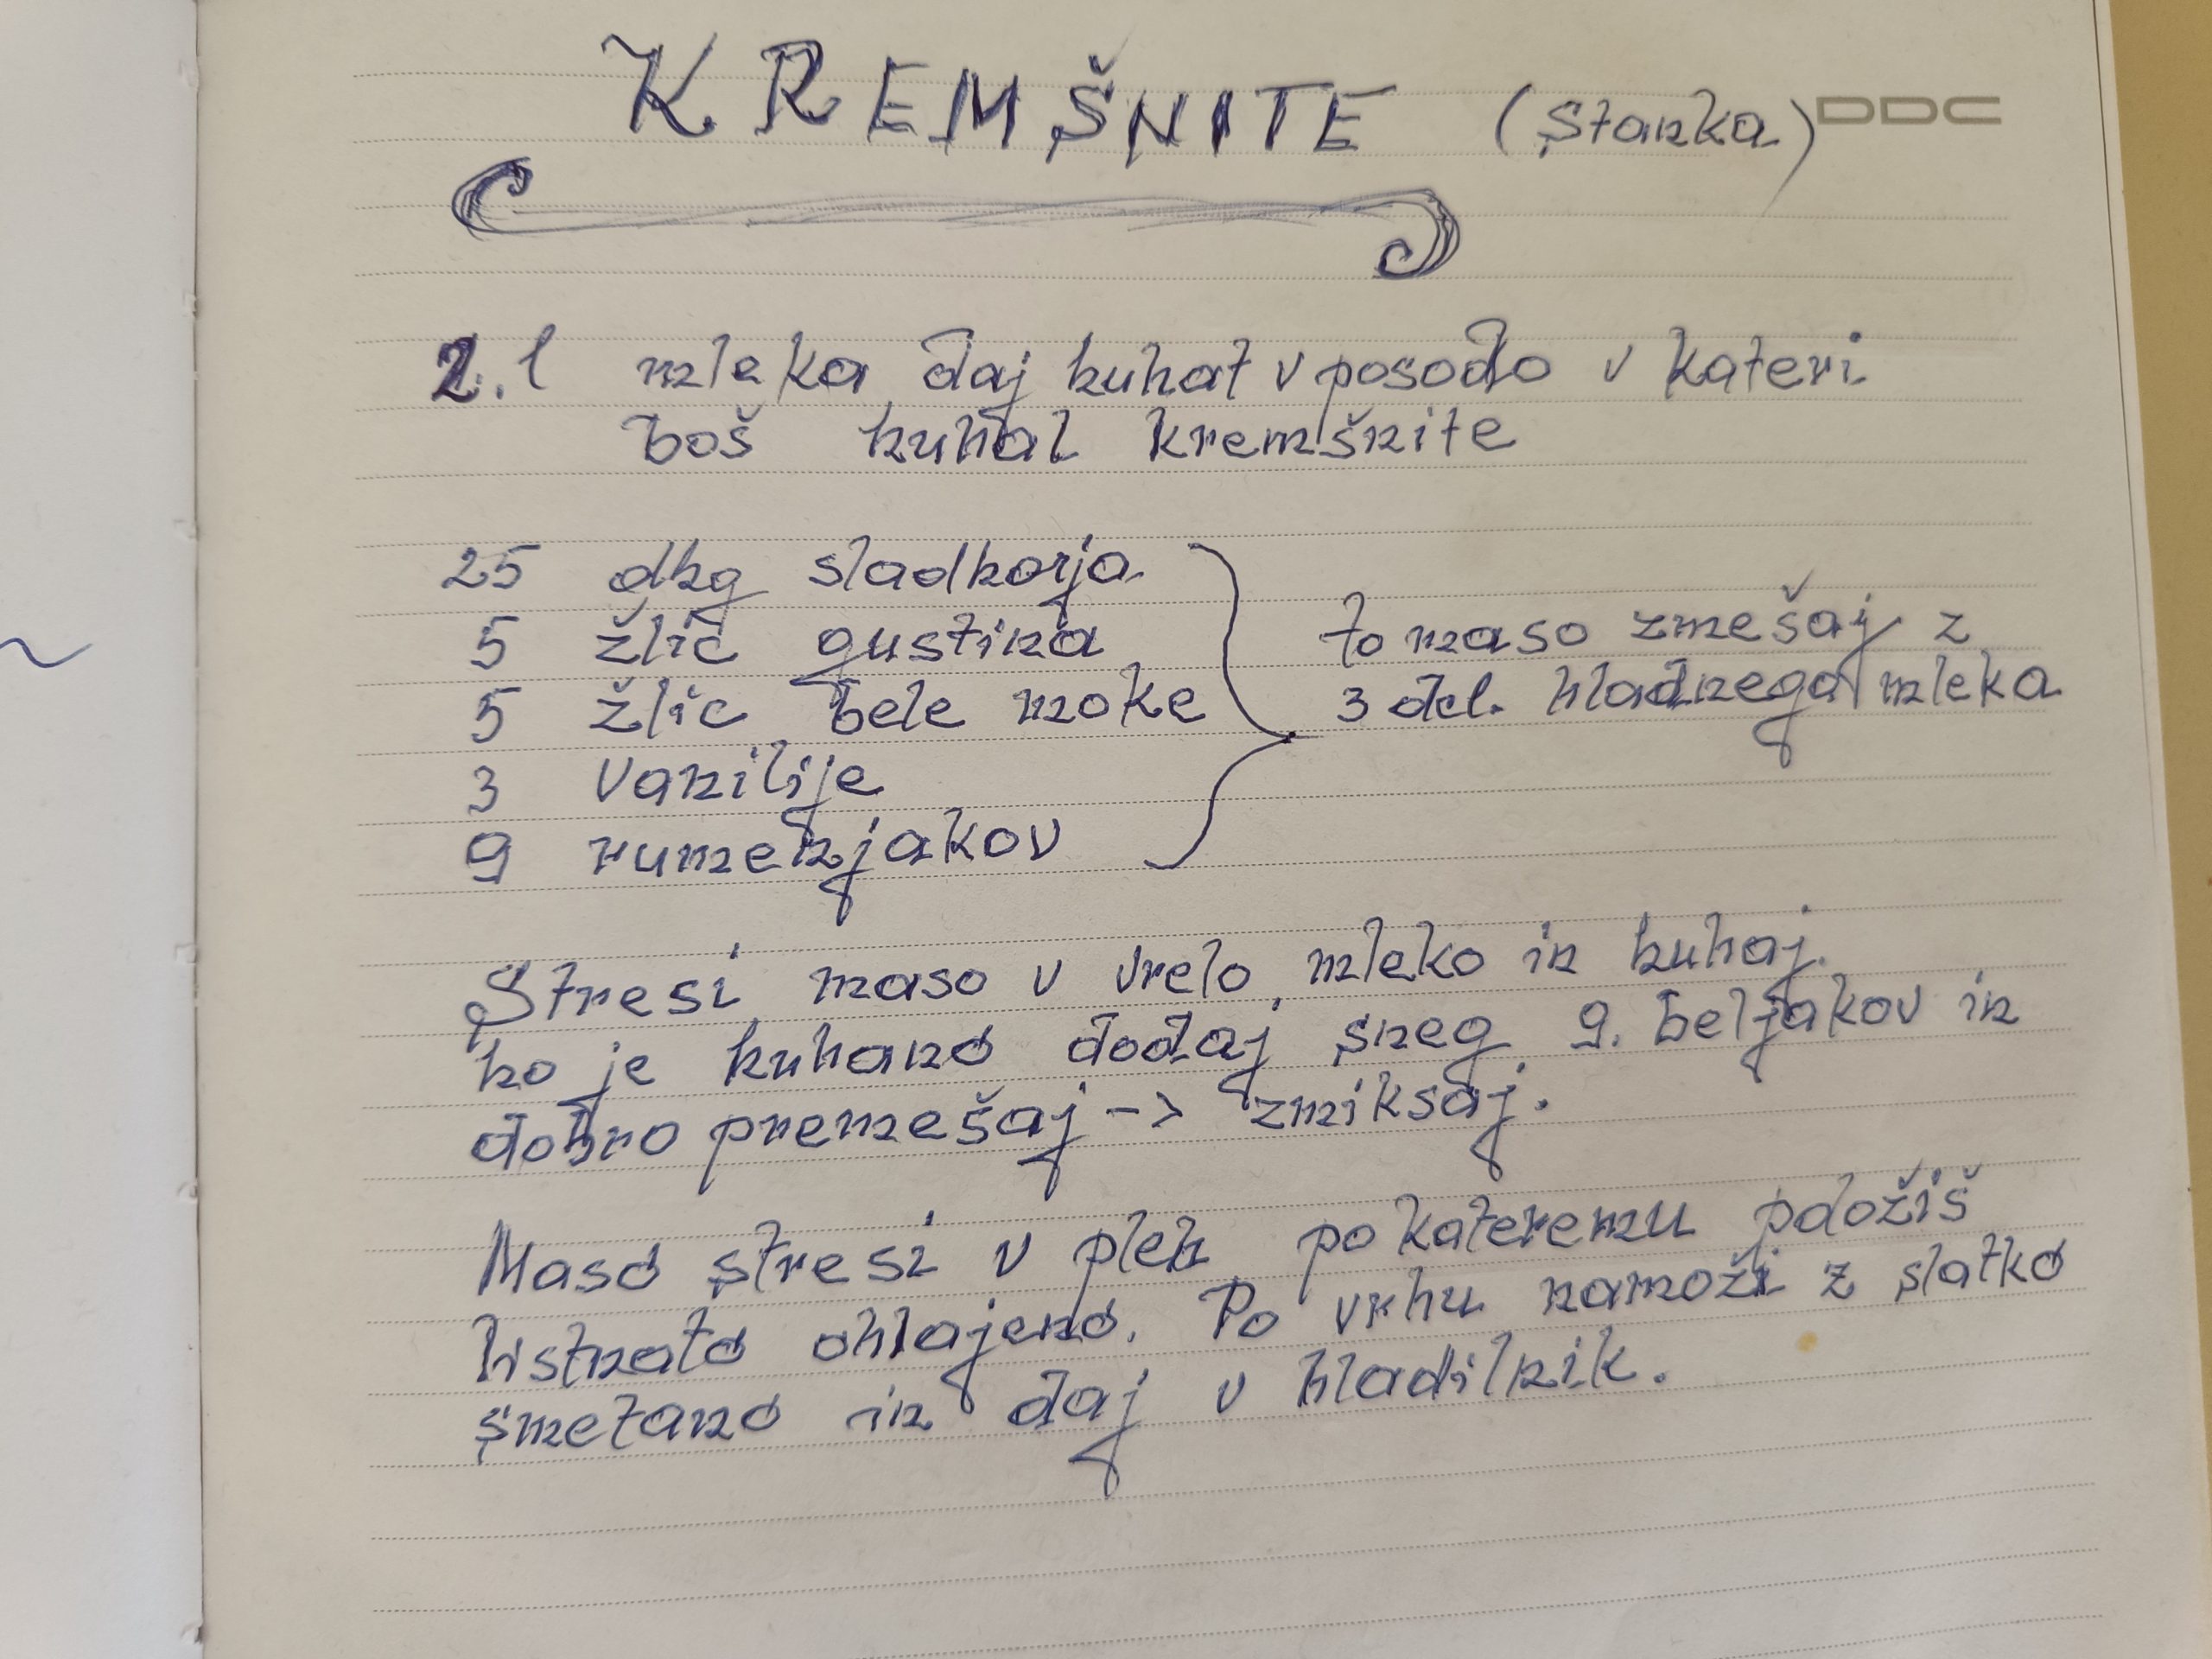 KREMŠNITE (Stanka) DDC
2.l mleka daj kuhat v posodo v kateri
boš kuhal kremšnite
25 dkg sladkorja
5 žlic gustina
5 žlic bele moke
3 vanilije
9 rumenjakov
to maso zmešaj z
3 dcl. hladnega mleka
Stresi maso v vrelo mleko in kuhaj.
ko je kuhano dodaj sneg 9. beljakov in
dobro premešaj -> zmiksaj.
Maso stresi v pleh po kateremu položiš
listnato ohlajeno. Po vrhu namoži z slatko
smetano in daj v hladilnik.